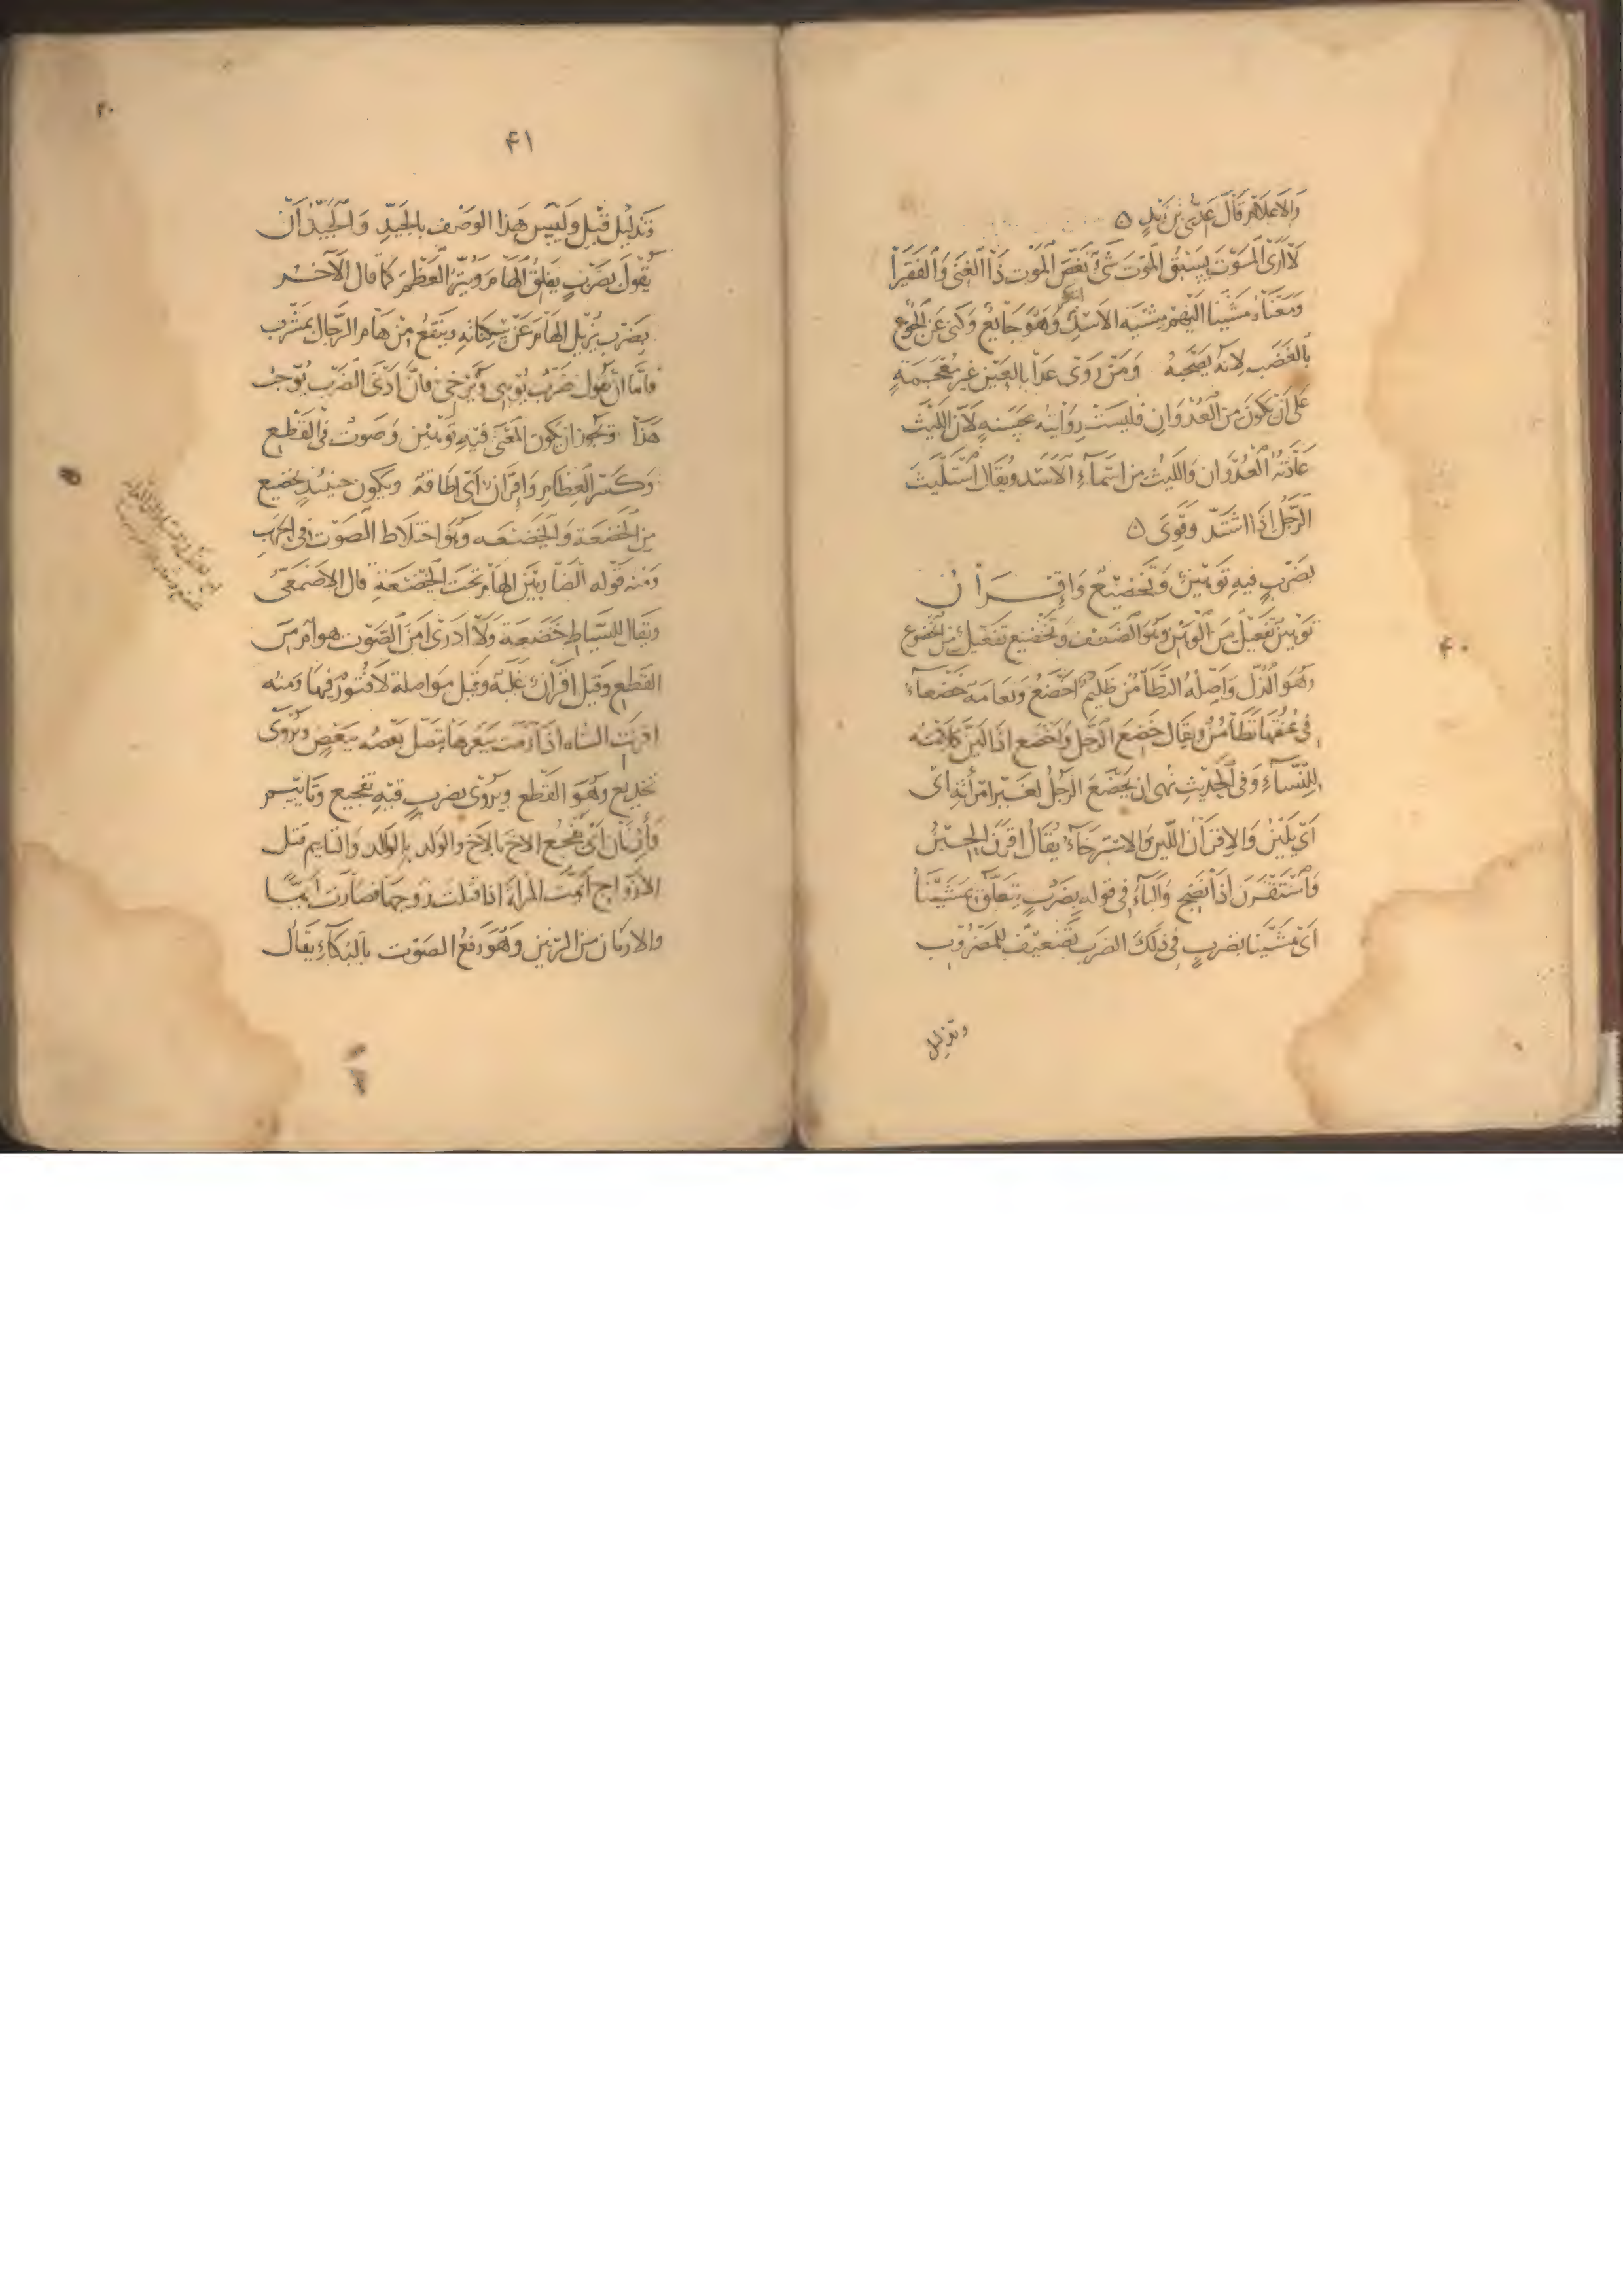 والاعلام قال عدي بن زيد
لا ارى الموت يسبق الموت شيء نغص الموت ذا الغنى والفقيرا
ومعناه مشينا اليهم مشية الاسد وهو جايع وكنى عن الجوع
بالغضب لانه يصحبه ومن روى عدا بالعين غير معجمة
على ان يكون من العدوان فليست روايته بحسنة لان الليث
عادته العدوان والليث من اسماء الاسد ويقال استليث
الرجل اذا اشتد وقوى
بضرب فيه توهين وتخضيع واقران
توهين تفعيل من الوهن وهو الضعف وتخضيع تفعيل من الخضوع
وهو الذل واصله التطامن ظليم اخضع ونعامة خضعاء
في عنقها تطامن ويقال خضع الرجل واخضع اذا لين كلامه
للنساء وفي الحديث نهى ان يخضع الرجل لغير امرأته اى
اى يلين والاقران اللين والاسترخاء يقال اقرن الحبن
واستقرن اذا نضج والباء في قوله بضرب يتعلق بمشينا
اى مشينا بضرب في ذلك الضرب تضعيف للمضروب
وتذليل
٤٠
٤١
٢٠
وتذليل قيل وليس هذا الوصف بالجيد والجيد ان
يقول بضرب يفلق الهام ويبر العظم كما قال الآخر
بضرب يزيل الهام عن سكناته وينقع من هام الرجال بمشرب
فاما ان يقول ضرب يوهى ويرخى فان ادنى الضرب يوجب
هذا ويجوز ان يكون المعنى فيه توهين وصوت في القطع
وكسر العظام واقران اى اطاقة ويكون حينئذ تخضيع
من الخضعة والخيضعه وهو اختلاط الصوت في الحرب
ومنه قوله الضاربين الهام تحت الخيضعة قال الاصمعي
ويقال للسياط خضعة ولا ادرى امن الصوت هو ام من
القطع وقيل اقران غلبة وقيل مواصلة لا فتور فيها ومنه
اقرنت الشاه اذا رمت ببعرها يتصل بعضه ببعض ويروى
تخديع وهو القطع ويروى بضرب فيه تفجيع وتاييم
وارنان اى تفجيع الاخ بالاخ والوالد بالولد والتاييم قتل
الازواج ايمت المراة اذا قتلت زوجها فصارت ايما
والارنان من الرنين وهو رفع الصوت بالبكاء يقال